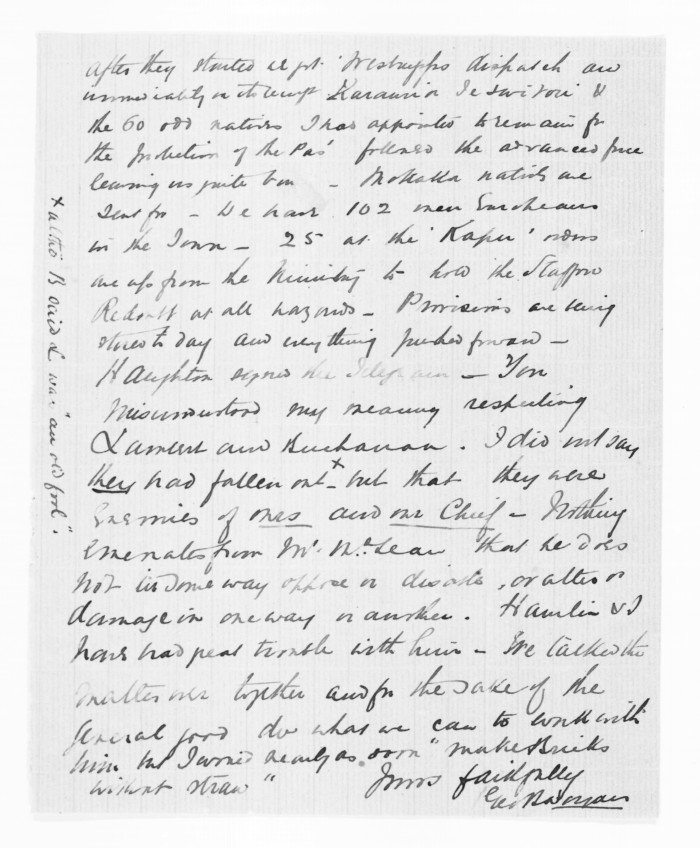 After they started we got Westrupps dispatch and
immediately on its receipt Karauria Te Sevi &
the 60 odd natives I had appointed to remain for
the protection of the Pas' followed the advanced force
leaving us quite bare - Mohaka natives are
sent for - We have 102 men Europeans
in the Town - 25 at the 'Kapu' orders
are up from the Ministry to hold the Stafford
Redoubt at all hazards - Provisions are being
stored to day and everything pushed forward -
Haughton signed the Telegram - You
misunderstood my meaning respecting
Lambert and Buchanan. I did not say
they had fallen out x - but that they were
Enemies of ours and our Chief - Nothing
Emenates from Mr. McLean that he does
not in some way oppose or dislike, or alter or
damage in one way or another. Hamlin & I
have had great trouble with him - We talked the
matter over together and for the sake of the
general good do what we can to work with
him but I would nearly as soon "make Bricks
without straw"
Yours faithfully
x altho' B said L was "an old fool".